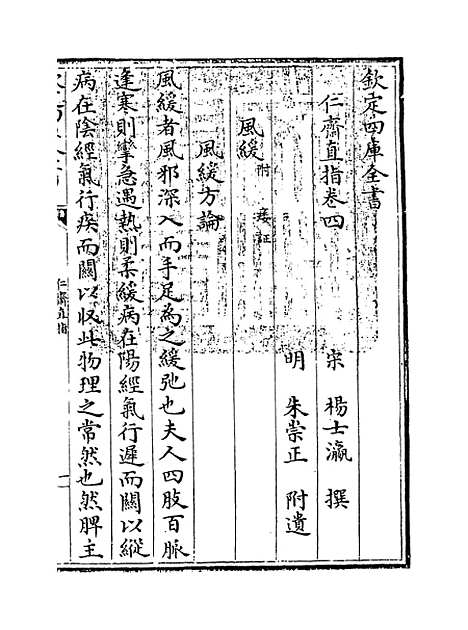 欽定四庫全書
仁齋直指卷四
宋 楊士瀛 撰
明 朱崇正 附遺
風緩 附 痿証
風緩方論
風緩者風邪深入而手足為之緩弛也夫人四肢百脈
逢寒則攣急遇熱則柔緩病在陽經氣行遲而關以縱
病在陰經氣行疾而關以收此物理之常然也然脾主
仁齋直指